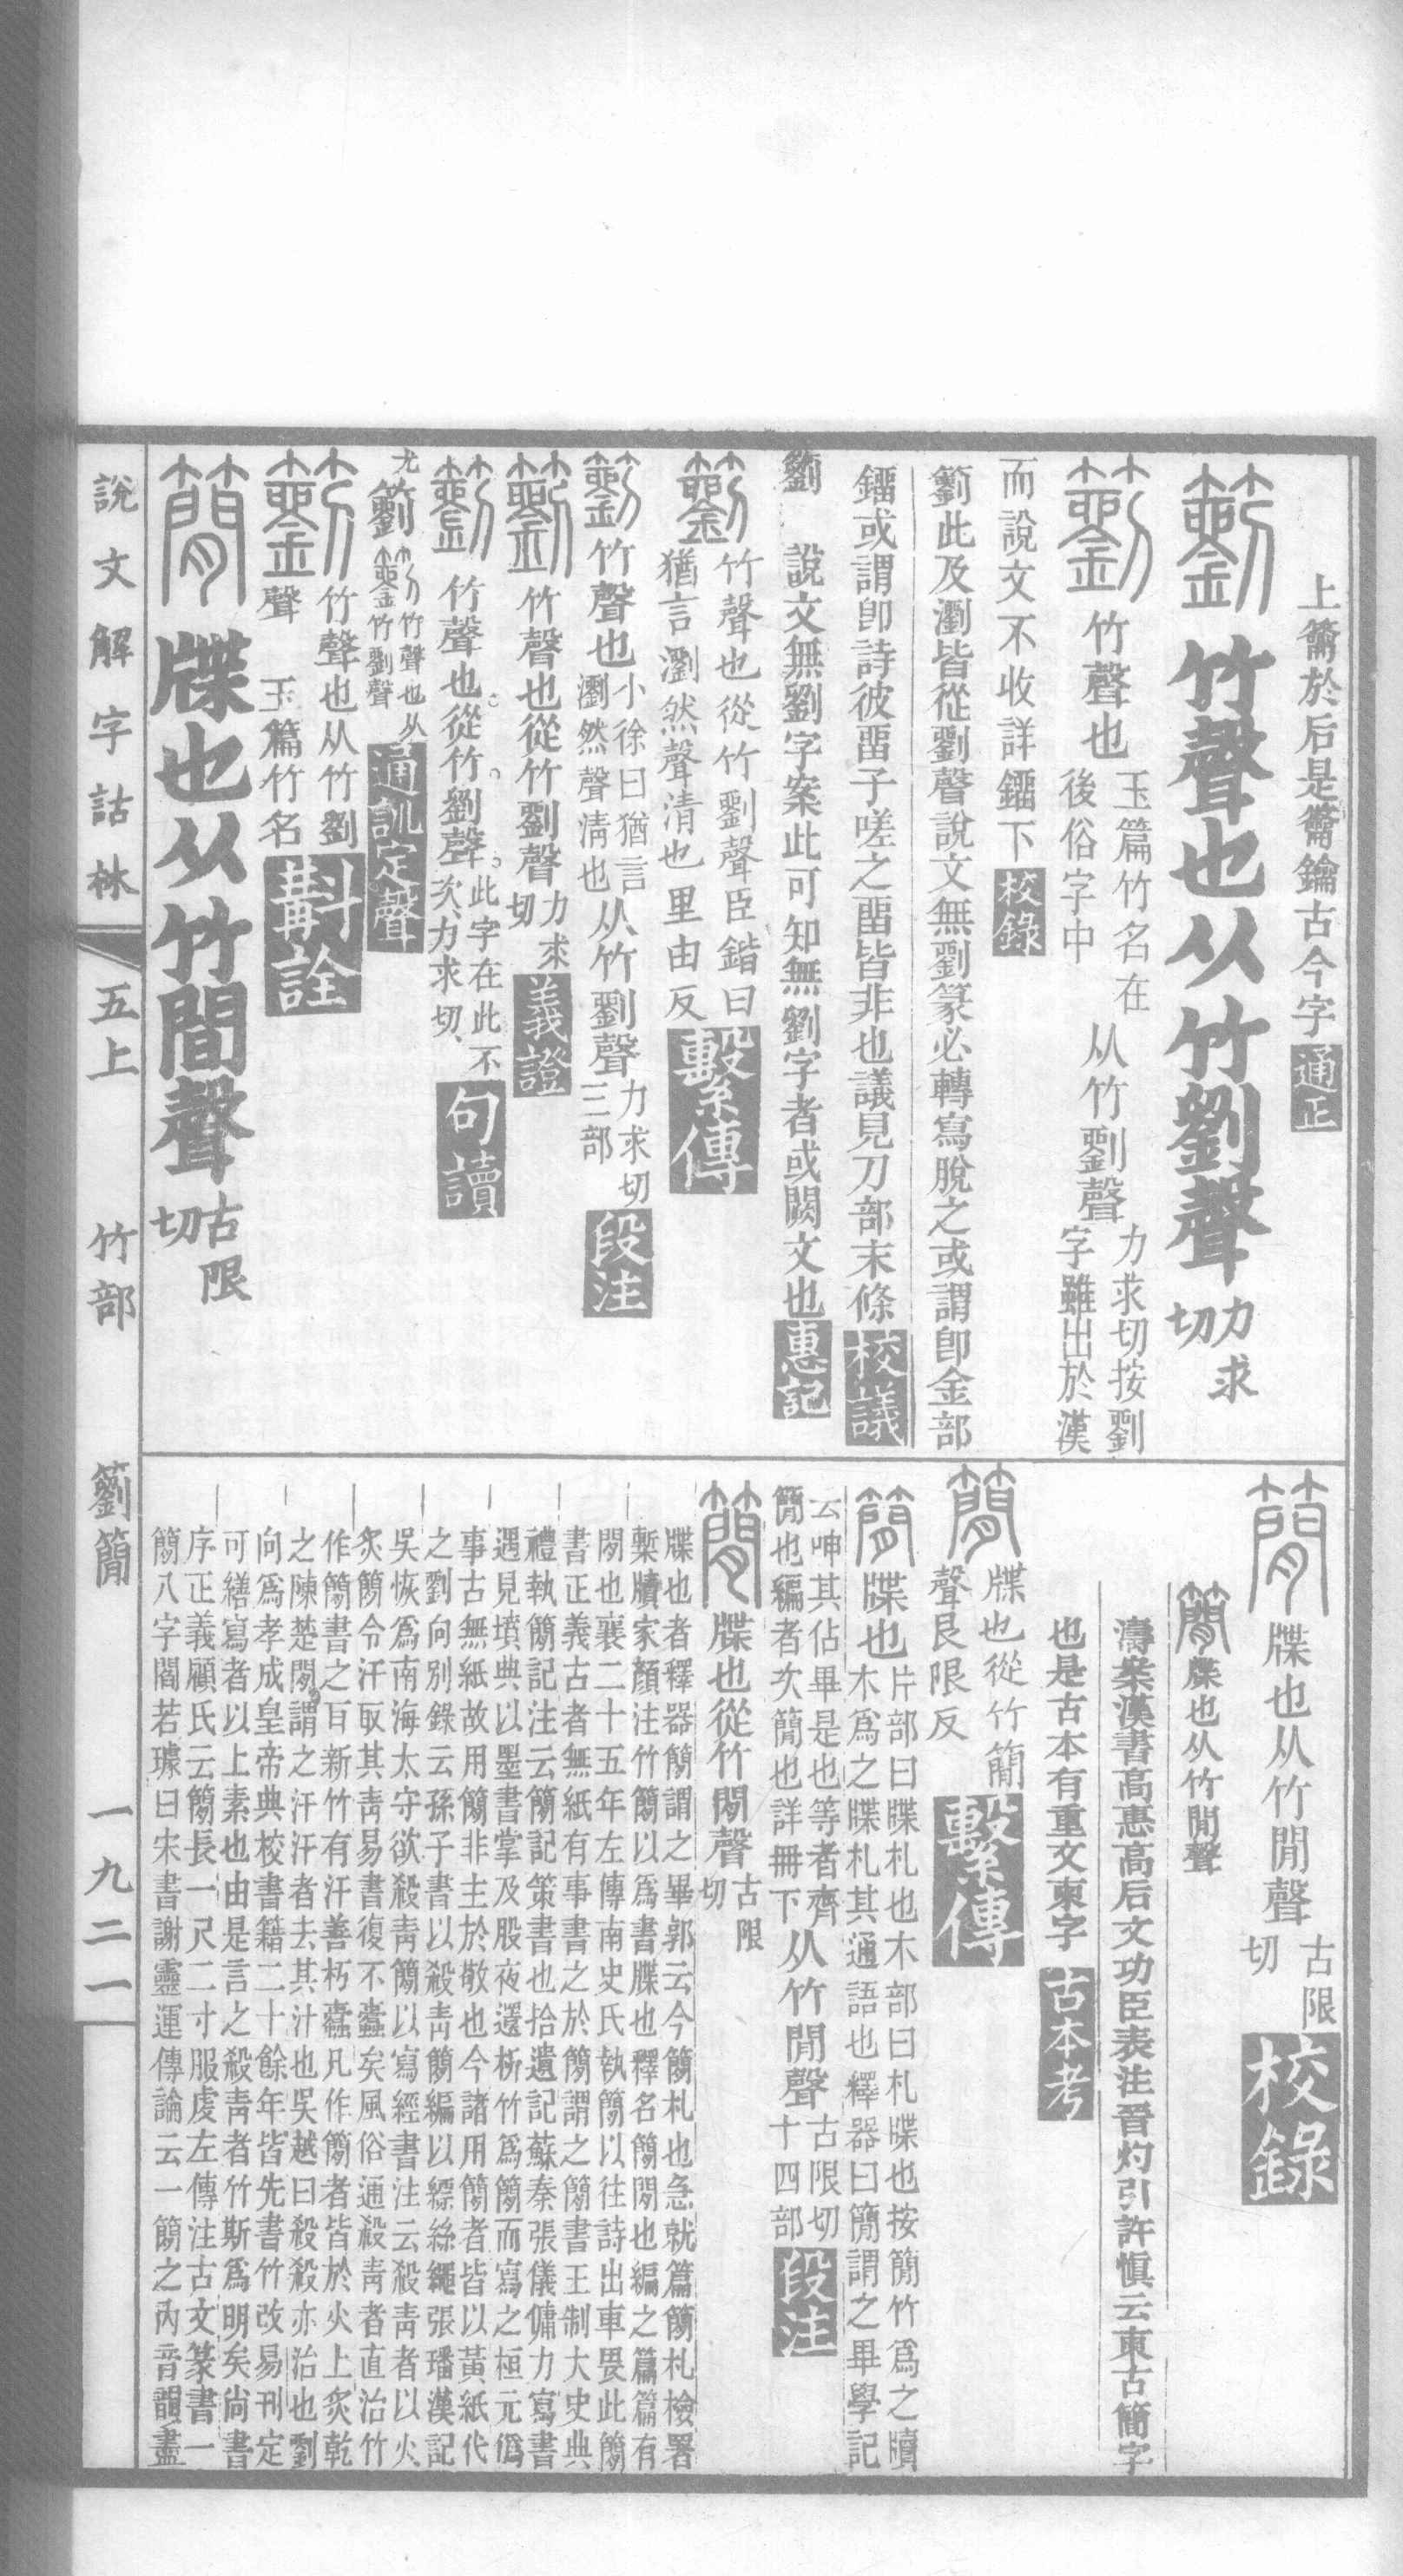 上籥於后是籥鑰古今字 通正
竹聲也从竹劉聲 力求切
竹聲也 玉篇竹名在後俗字中 从竹劉聲 力求切按劉字雖出於漢
而說文不收詳鐂下 校錄
籀此及瀏皆從劉聲說文無劉篆必轉寫脫之或謂卽金部
鐂或謂卽詩彼畱子嗟之畱皆非也議見刀部末條 校議
籀 說文無劉字案此可知無劉字者或闕文也 惠記
竹聲也從竹劉聲臣鍇曰猶言瀏然聲清也里由反 繫傳
竹聲也 小徐曰猶言瀏然聲淸也 从竹劉聲 力求切三部 段注
竹聲也從竹劉聲 力求切 義證
竹聲也從竹劉聲 此字在此不次力求切 句讀
尤 竹聲也从竹劉聲 通訓定聲
竹聲也从竹劉聲 玉篇竹名 斠詮
牒也从竹間聲 古限切
牒也从竹閒聲 古限切 校錄
簡牒也从竹閒聲
濤案漢書高惠高后文功臣表注晉灼引許愼云柬古簡字
也是古本有重文柬字 古本考
牒也從竹簡聲艮限反 繫傳
牒也 片部曰牒札也木部曰札牒也按簡竹爲之牘木爲之牒札其通語也釋器曰簡謂之畢學記
云呻其佔畢是也等者齊簡也編者次簡也詳冊下 从竹閒聲 古限切十四部 段注
牒也從竹閒聲 古限切
牒也者釋器簡謂之畢郭云今簡札也急就篇簡札檢署
槧牘家顏注竹簡以爲書牒也釋名簡閒也編之篇篇有
閒也襄二十五年左傳南史氏執簡以往詩出車畏此簡
書正義古者無紙有事書之於簡謂之簡書王制大史典
禮執簡記注云簡記策書也拾遺記蘇秦張儀傭力寫書
遇見墳典以墨書掌及股夜還析竹爲簡而寫之桓元僞
事古無紙故用簡非主於敬也今諸用簡者皆以黃紙代
之劉向別錄云孫子書以殺靑簡編以縹絲繩張璠漢記
吳恢爲南海太守欲殺靑簡以寫經書注云殺靑者以火
炙簡令汗取其靑易書復不蠹矣風俗通殺靑者直治竹
作簡書之耳新竹有汗善朽蠹凡作簡者皆於火上炙乾
之陳楚閒謂之汗汗者去其汁也吳越曰殺殺亦治也劉
向爲孝成皇帝典校書籍二十餘年皆先書竹改易刊定
可繕寫者以上素也由是言之殺靑者竹斯爲明矣尚書
序正義顧氏云簡長一尺二寸服虔左傳注古文篆書一
簡八字閻若璩曰宋書謝靈運傳論云一簡之內音韻盡
說文解字詁林 五上 竹部 籀簡 一九二一